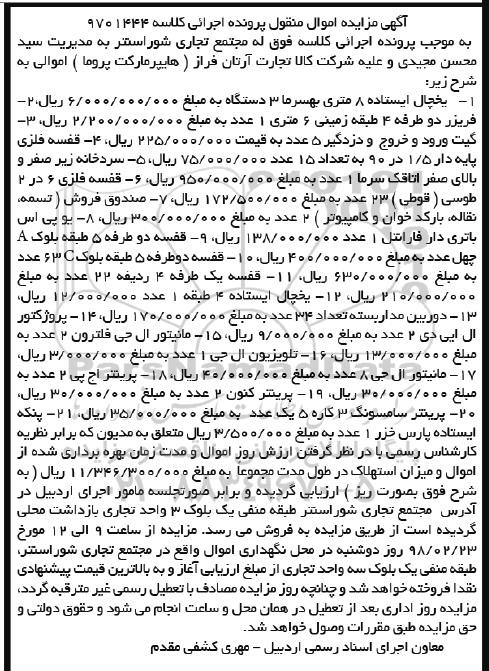 آگهی مزایده اموال منقول پرونده اجرائی کلاسه ۹۷۰۱۴۴۴
به موجب پرونده اجرائی کلاسه فوق له مجتمع تجاری شوراسنتر به مدیریت سید
محسن مجیدی و علیه شرکت کالا تجارت آرتان فراز ( هایپرمارکت پروما ) اموالی به
شرح زیر:
۱- یخچال ایستاده ۸ متری بهسرما ۳ دستگاه به مبلغ ۶/۰۰۰/۰۰۰/۰۰۰ ریال،۲-
فریزر دو طرفه ۴ طبقه زمینی ۶ متری ۱ عدد به مبلغ ۲/۲۰۰/۰۰۰/۰۰۰ ریال، ۳-
گیت ورود و خروج و دزدگیر ۵ عدد به قیمت ۲۲۵/۰۰۰/۰۰۰ ریال، ۴- قفسه فلزی
پایه دار ۱/۵ در ۹۰ به تعداد ۱۵ عدد ۷۵/۰۰۰/۰۰۰ ریال،۵- سردخانه زیر صفر و
بالای صفر اتاقک سرما ۱ عدد به مبلغ ۹۵۰/۰۰۰/۰۰۰ ریال، ۶- قفسه فلزی ۶ در ۲
طوسی ( قوطی ) ۲۳ عدد به مبلغ ۱۷۲/۵۰۰/۰۰۰ ریال، ۷- صندوق فروش ( تسمه،
نقاله، بارکد خوان و کامپیوتر ) ۲ عدد به مبلغ ۳۰۰/۰۰۰/۰۰۰ ریال، ۸- یو پی اس
باتری دار فاراتل ۱ عدد ۱۳۸/۰۰۰/۰۰۰ ریال، ۹- قفسه دو طرفه ۵ طبقه بلوک A
چهل عدد به مبلغ ۴۰۰/۰۰۰/۰۰۰ ریال، ۱۰- قفسه دوطرفه ۵ طبقه بلوک C ۶۳ عدد
به مبلغ ۶۳۰/۰۰۰/۰۰۰ ریال، ۱۱- قفسه یک طرفه ۴ ردیفه ۲۲ عدد به مبلغ
۲۱۰/۰۰۰/۰۰۰ ریال، ۱۲- یخچال ایستاده ۴ طبقه ۱ عدد ۱۲/۰۰۰/۰۰۰ ریال،
۱۳- دوربین مداربسته تعداد ۳۴ عدد به مبلغ ۱۷۰/۰۰۰/۰۰۰ ریال، ۱۴- پروژکتور
ال ایی دی ۲ عدد به مبلغ ۹/۰۰۰/۰۰۰ ریال، ۱۵- مانیتور ال جی فلترون ۲ عدد به
مبلغ ۱۳/۰۰۰/۰۰۰ ریال، ۱۶- تلویزیون ال جی ۱ عدد به مبلغ ۳/۰۰۰/۰۰۰ ریال،
۱۷- مانیتور ال جی ۸ عدد به مبلغ ۴۰/۰۰۰/۰۰۰ ریال، ۱۸- پرینتر اچ پی ۲ عدد به
مبلغ ۳۰/۰۰۰/۰۰۰ ریال، ۱۹- پرینتر کنون ۲ عدد به مبلغ ۳۰/۰۰۰/۰۰۰ ریال،
۲۰- پرینتر سامسونگ ۳ کاره ۵ یک عدد به مبلغ ۳۵/۰۰۰/۰۰۰ ریال، ۲۱- پنکه
ایستاده پارس خزر ۱ عدد به مبلغ ۳/۵۰۰/۰۰۰ ریال متعلق به مدیون که برابر نظریه
کارشناس رسمی با در نظر گرفتن ارزش روز اموال و مدت زمان بهره برداری شده از
اموال و میزان استهلاک در طول مدت مجموعا به مبلغ ۱۱/۳۴۶/۳۰۰/۰۰۰ ریال ( به
شرح فوق بصورت ریز ) ارزیابی گردیده و برابر صورتجلسه مامور اجرای اردبیل در
آدرس مجتمع تجاری شوراسنتر طبقه منفی یک بلوک ۳ واحد تجاری بازداشت محلی
گردیده است از طریق مزایده به فروش می رسد. مزایده از ساعت ۹ الی ۱۲ مورخ
۹۸/۰۲/۲۳ روز دوشنبه در محل نگهداری اموال واقع در مجتمع تجاری شوراسنتر،
طبقه منفی یک بلوک سه واحد تجاری از مبلغ ارزیابی آغاز و به بالاترین قیمت پیشنهادی
نقدا فروخته خواهد شد و چنانچه روز مزایده مصادف با تعطیل رسمی غیر مترقبه گردد،
مزایده روز اداری بعد از تعطیل در همان محل و ساعت انجام می شود و حقوق دولتی و
حق مزایده طبق مقررات وصول خواهد شد.
معاون اجرای اسناد رسمی اردبیل - مهری کشفی مقدم